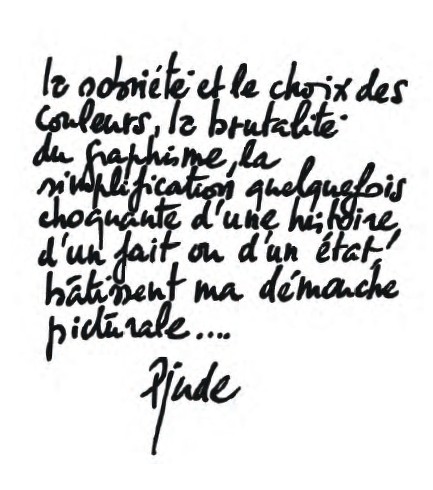 la sobriété et le choix des
couleurs, la brutalité
du graphisme, la
simplification quelquefois
choquante d'une histoire,
d'un fait ou d'un état,
bâtissent ma démarche
picturale....
Pjude